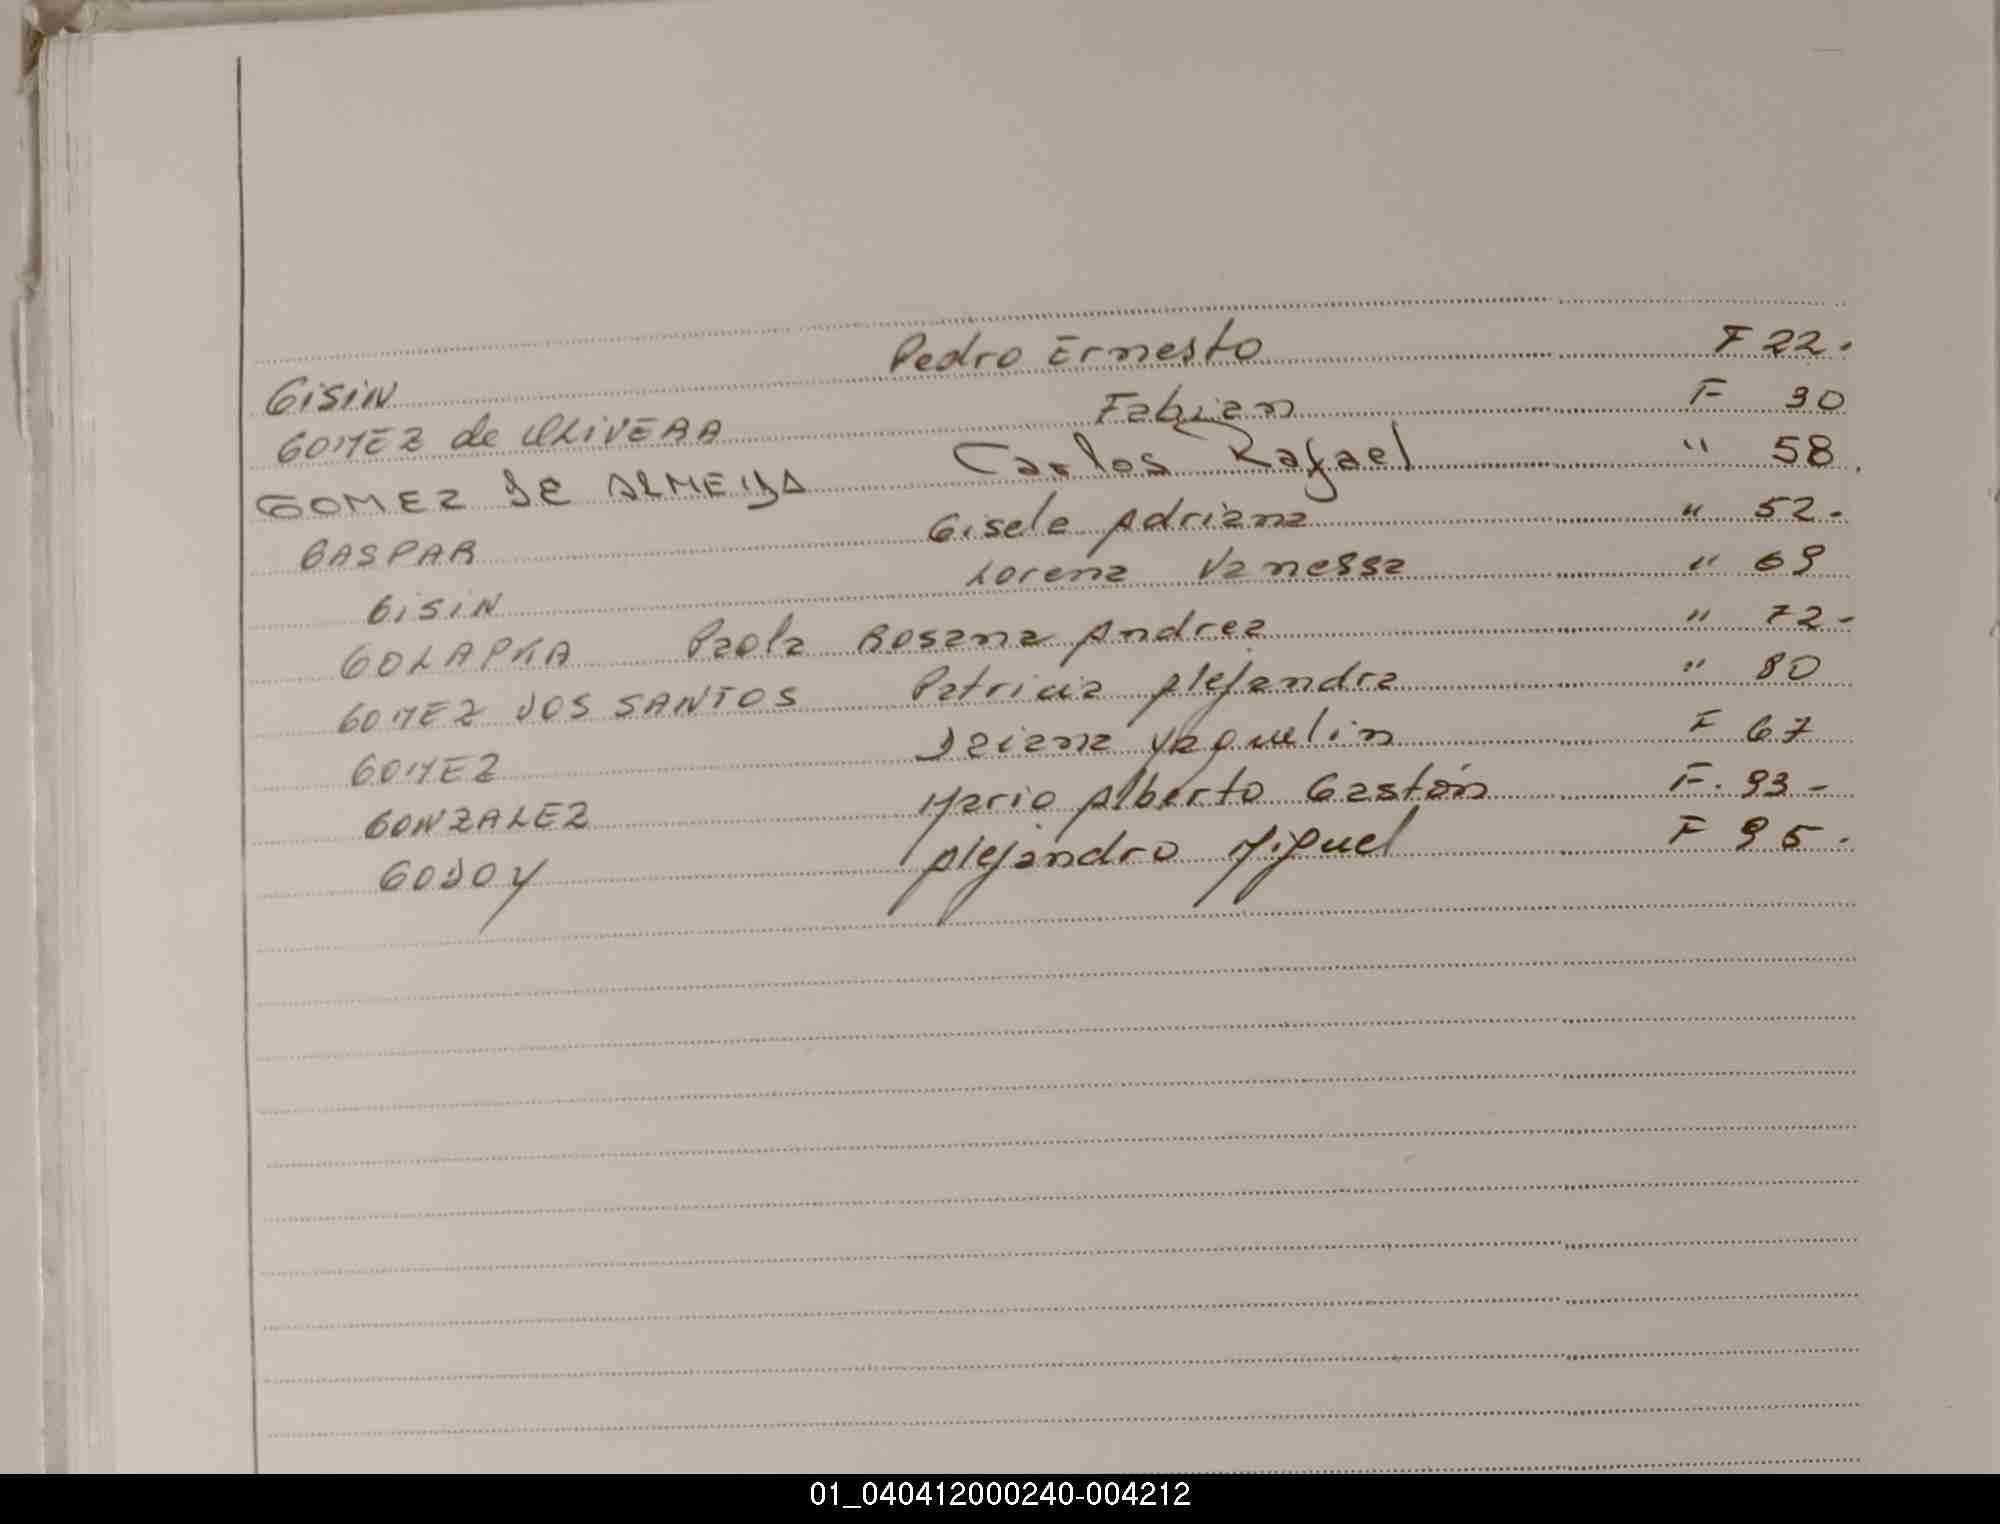 GISIN Pedro Ernesto F 22.
GOMEZ de OLIVERA Fabian F 30
GOMEZ DE ALMEIDA Carlos Rafael " 58.
GASPAR Gisele Adriana " 52-
GISIN Lorena Vanessa " 69
GOLAPKA Paola Rosana Andrea " 72-
GOMEZ DOS SANTOS Patricia Alejandra " 80
GOMEZ Daiana Yaquelin F 67
GONZALEZ Mario Alberto Gastón F. 93-
GODOY Alejandro Miguel F 95.
01_040412000240-004212